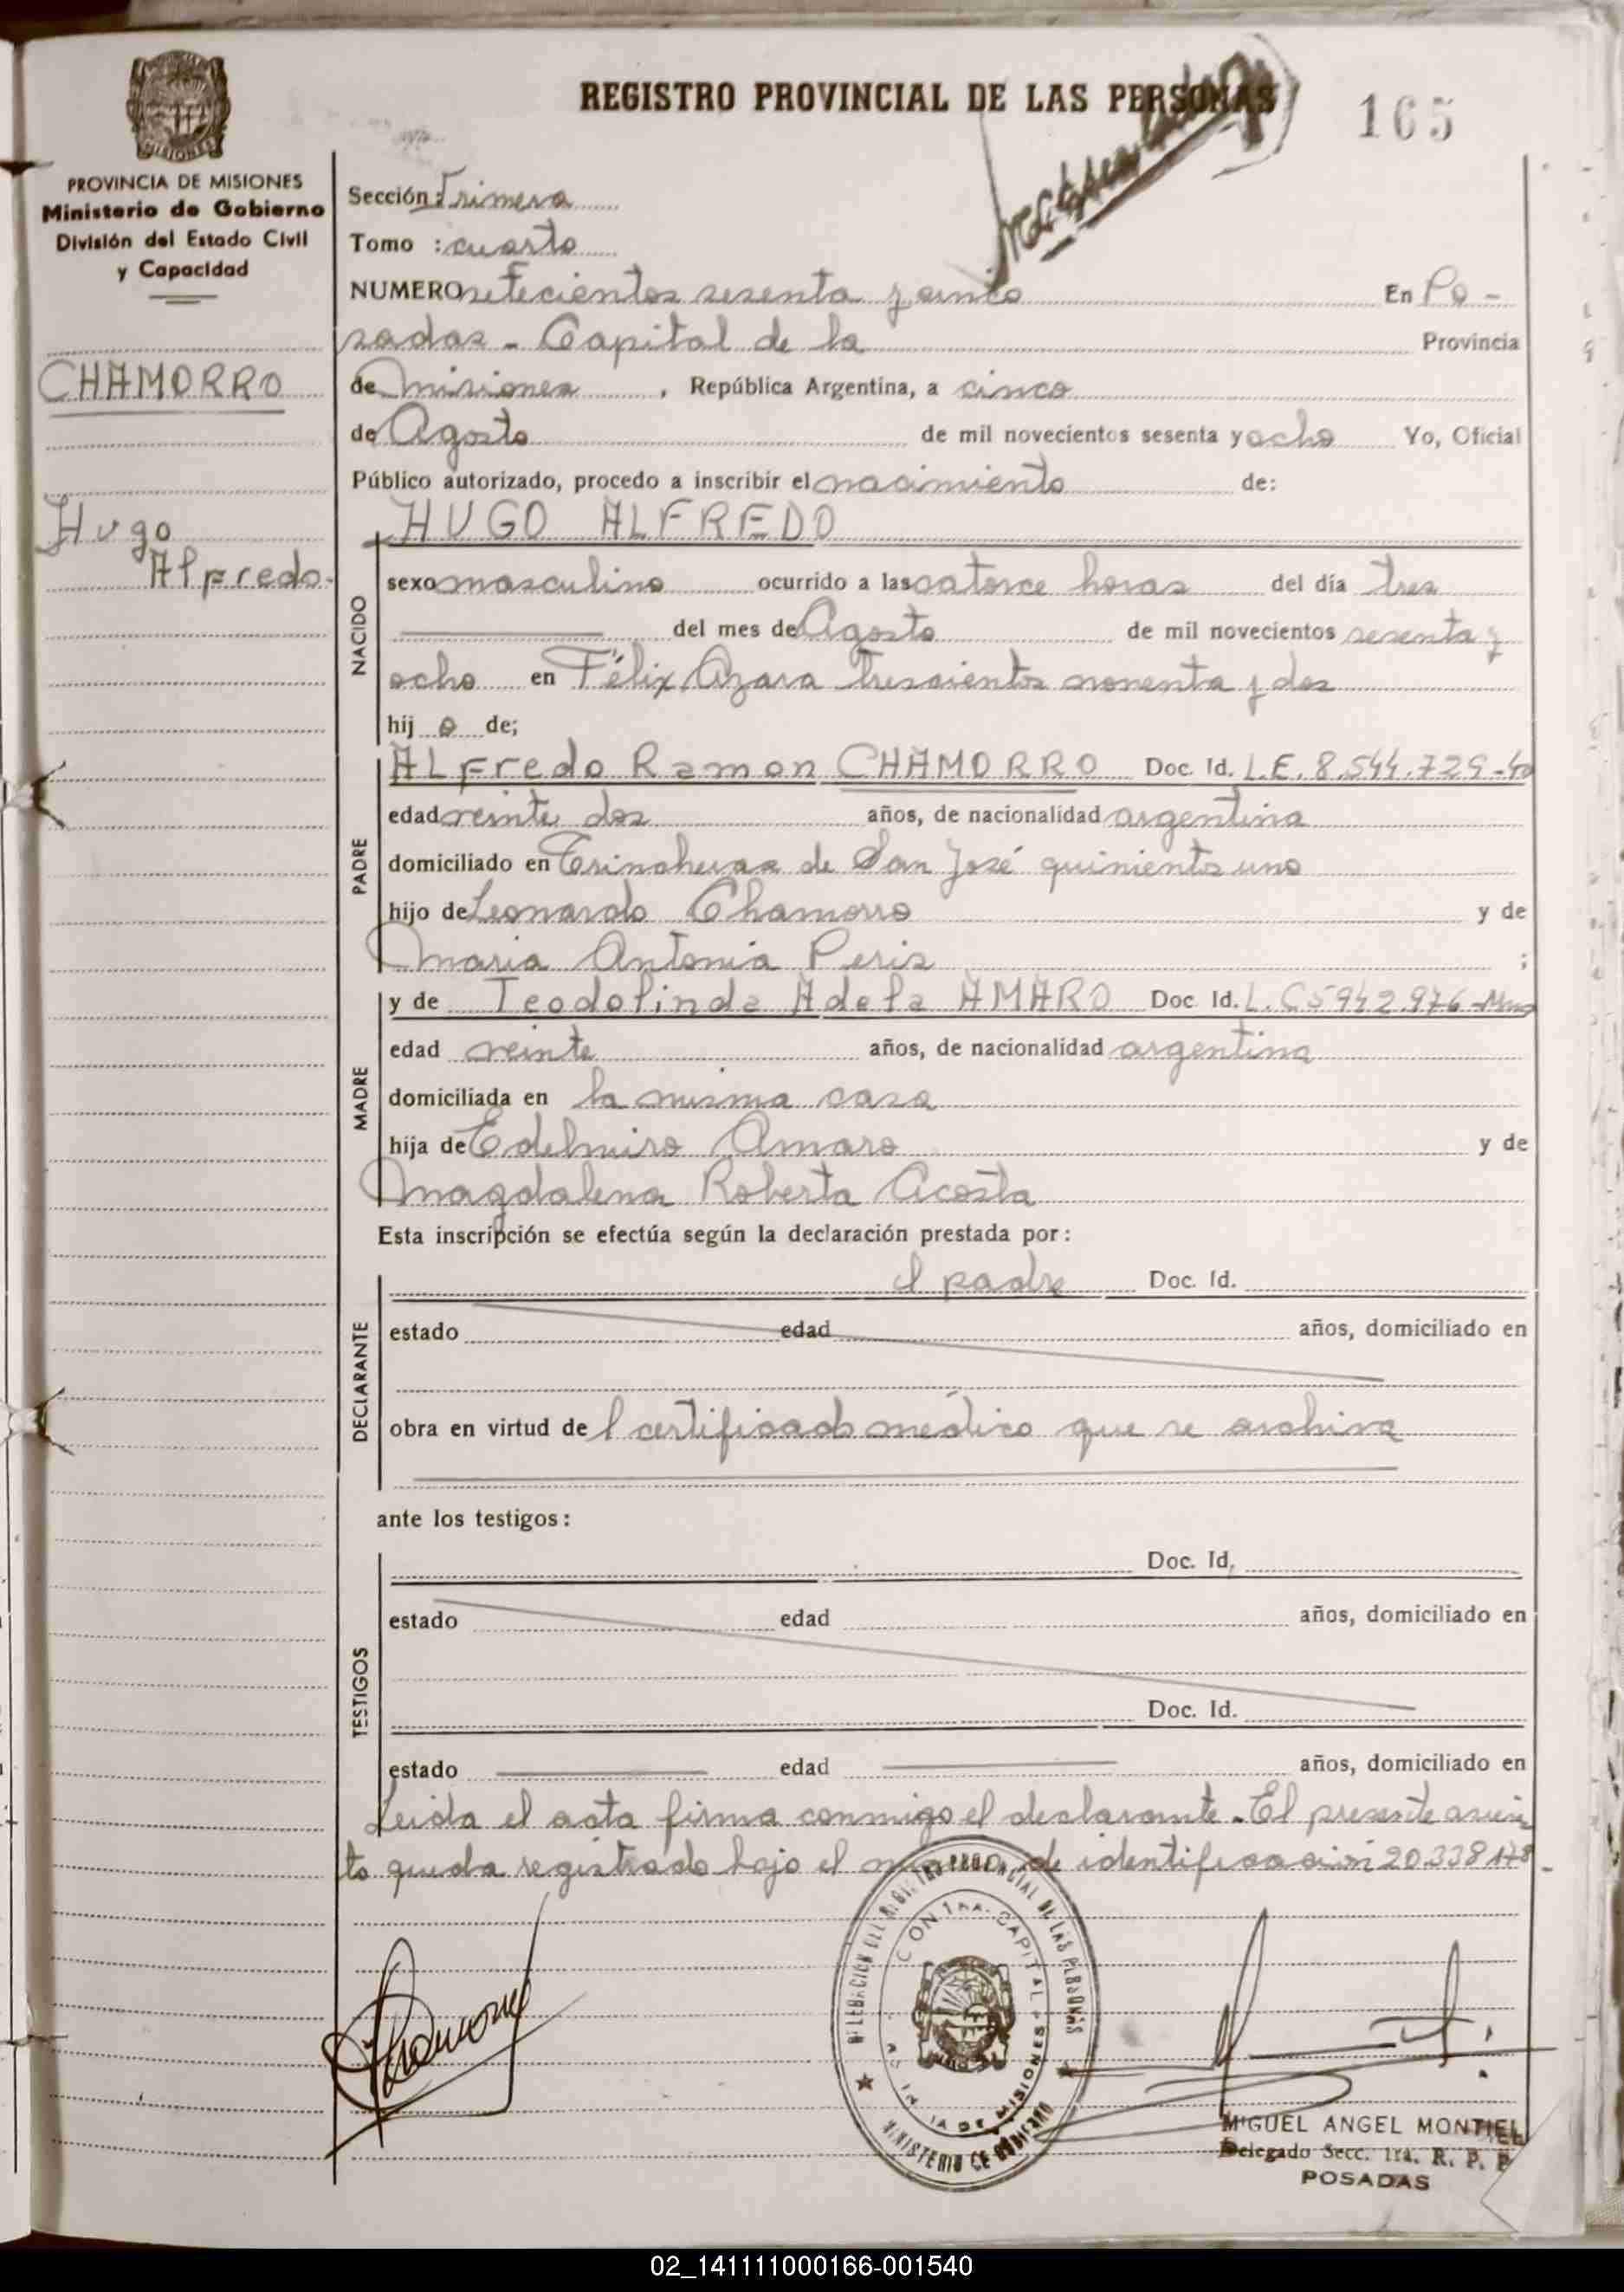 REGISTRO PROVINCIAL DE LAS PERSONAS
165
MISIONES
PROVINCIA DE MISIONES
Ministerio de Gobierno
División del Estado Civil
y Capacidad
CHAMORRO
Hugo
Alfredo.
Sección: Primera
Tomo : cuarto
NUMERO setecientos sesenta y cinco En Po-
sadas - Capital de la Provincia
de Misiones, República Argentina, a cinco
de Agosto de mil novecientos sesenta y ocho Yo, Oficial
Público autorizado, procedo a inscribir el nacimiento de:
HUGO ALFREDO
NACIDO
sexo masculino ocurrido a las catorce horas del día tres
del mes de Agosto de mil novecientos sesenta y
ocho en Félix Azara trescientos noventa y dos
hij o de;
PADRE
ALFredo Ramon CHAMORRO Doc. Id. L.E. 8.544.729
edad veinte dos años, de nacionalidad argentina
domiciliado en Trincheras de San José quinientos uno
hijo de Leonardo Chamorro y de
Maria Antonia Peris ;
MADRE
y de Teodolinda Adela AMARO Doc. Id. L.C 5942.976
edad veinte años, de nacionalidad argentina
domiciliada en la misma casa
hija de Edelmiro Amaro y de
Magdalena Roberta Acosta
Esta inscripción se efectúa según la declaración prestada por:
DECLARANTE
el padre Doc. Id.
estado edad años, domiciliado en
obra en virtud de l certificado médico que se archiva
ante los testigos:
TESTIGOS
Doc. Id.
estado edad años, domiciliado en
Doc. Id.
estado edad años, domiciliado en
Leida el acta firma conmigo el declarante - El presente asien
to queda registrado bajo el número de identificación 20338178 -
DELEGACION DEL REGISTRO PROVINCIAL DE LAS PERSONAS
MINISTERIO DE GOBIERNO
MIGUEL ANGEL MONTIEL
Delegado Secc. 1ra. R. P. P
POSADAS
02_141111000166-001540